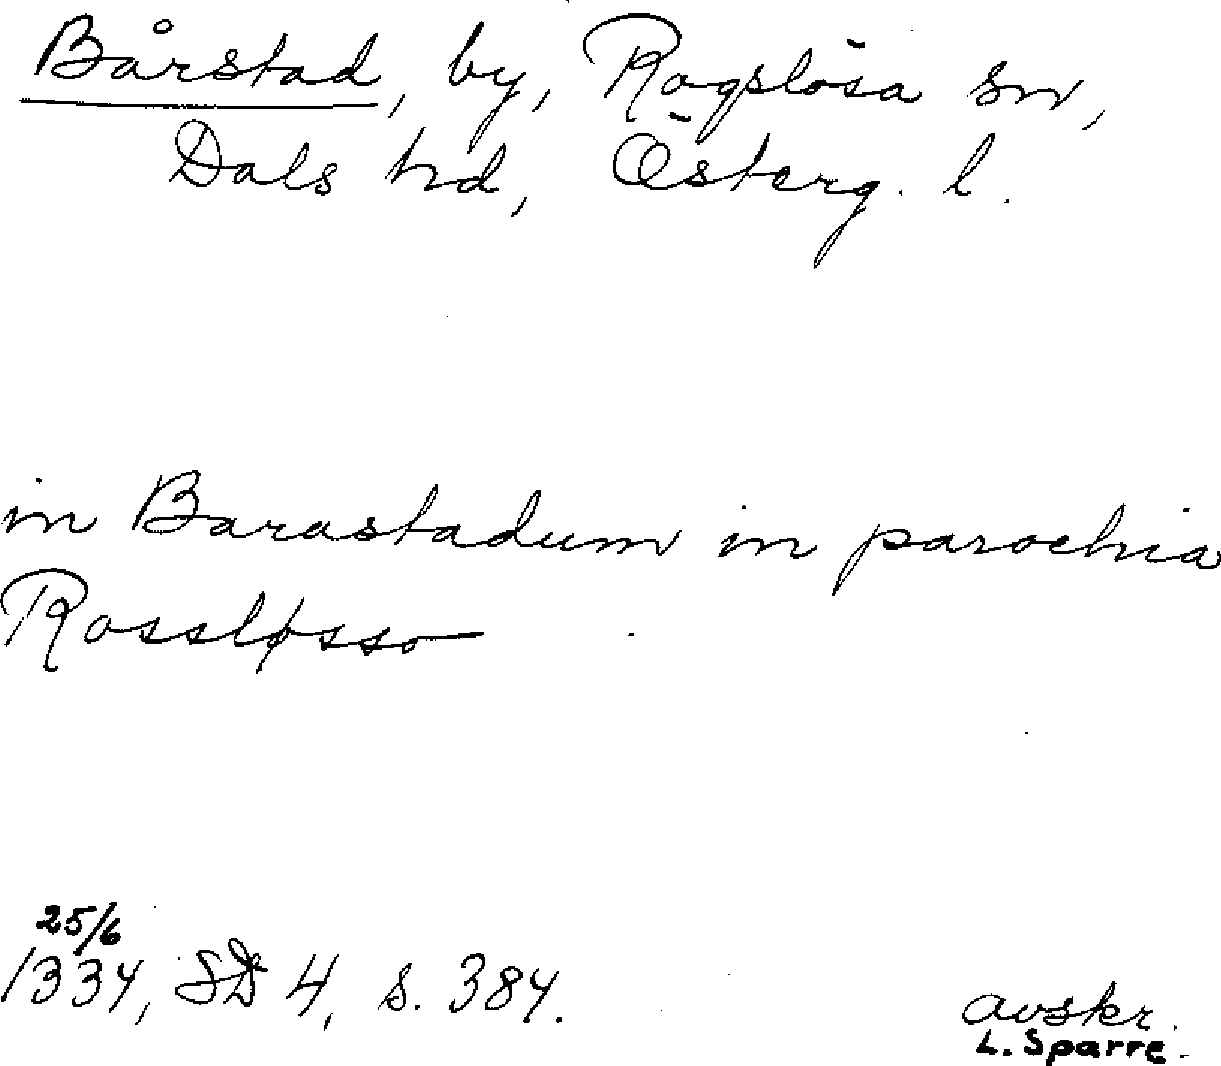 Bårstad, by, Rogslösa sn,
Dals hd, Österg. l.
in Barastadum in parochia
Rossløsso
25/6
1334, SD 4, s. 384.
avskr.
L. Sparre.